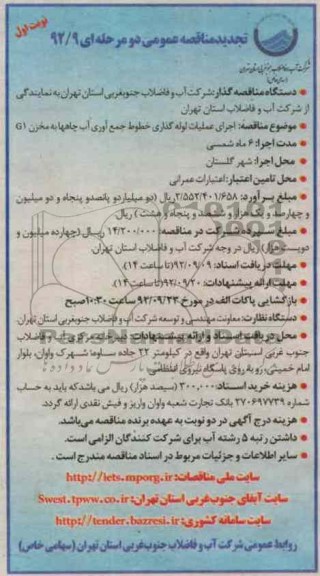 نوبت اول
تجدیدمناقصه عمومی دو مرحله ای ۹۲/۹
دستگاه مناقصه گذار: شرکت آب و فاضلاب جنوبغربی استان تهران به نمایندگی
از شرکت آب و فاضلاب استان تهران
موضوع مناقصه: اجرای عملیات لوله گذاری خطوط جمع آوری آب چاهها به مخزن G1
مدت اجرا: ۶ ماه شمسی
محل اجرا: شهر گلستان
محل تامین اعتبار: اعتبارات عمرانی
مبلغ برآورد: ۲/۵۵۲/۴۰۱/۶۵۸ ریال (دو میلیاردو پانصدو پنجاه و دو میلیون
و چهارصد و یک هزار و ششصد و پنجاه و هشت) ریال
مبلغ سپرده شرکت در مناقصه: ۱۴/۲۰۰/۰۰۰ ریال (چهارده میلیون و
دویست هزار) ریال در وجه شرکت آب و فاضلاب استان تهران
مهلت دریافت اسناد: ۹۲/۰۹/۰۹ (تا ساعت ۱۴)
مهلت ارائه پیشنهادات: ۹۲/۰۹/۲۰ (تا ساعت ۱۴)
بازگشایی پاکات الف در مورخ ۹۲/۰۹/۲۳ ساعت ۱۰:۳۰ صبح
دستگاه نظارت: معاونت مهندسی و توسعه شرکت آب و فاضلاب جنوبغربی استان تهران
محل دریافت اسناد و ارائه پیشنهادات: آب و فاضلاب
جنوب غربی استان تهران واقع در کیلومتر ۲۲ جاده ساوه، شهرک واوان، بلوار
امام خمینی، رو به روی پاسگاه نیروی انتظامی
هزینه خرید اسناد: ۳۰۰,۰۰۰ (سیصد هزار) ریال می باشد که باید به حساب
شماره ۲۷۰۶۹۷۷۳۹ بانک تجارت شعبه واوان واریز و فیش نقدی ارائه گردد.
هزینه درج آگهی در دو نوبت به عهده برنده مناقصه می‌باشد.
داشتن رتبه ۵ رشته آب برای شرکت کنندگان الزامی است.
سایر اطلاعات و جزئیات مربوط در اسناد مناقصه مندرج است.
سایت ملی مناقصات: http://iets.mporg.ir
سایت آبفای جنوب غربی استان تهران: Swest.tpww.co.ir
سایت سامانه کشوری: http://tender.bazresi.ir
روابط عمومی شرکت آب و فاضلاب جنوب غربی استان تهران (سهامی خاص)